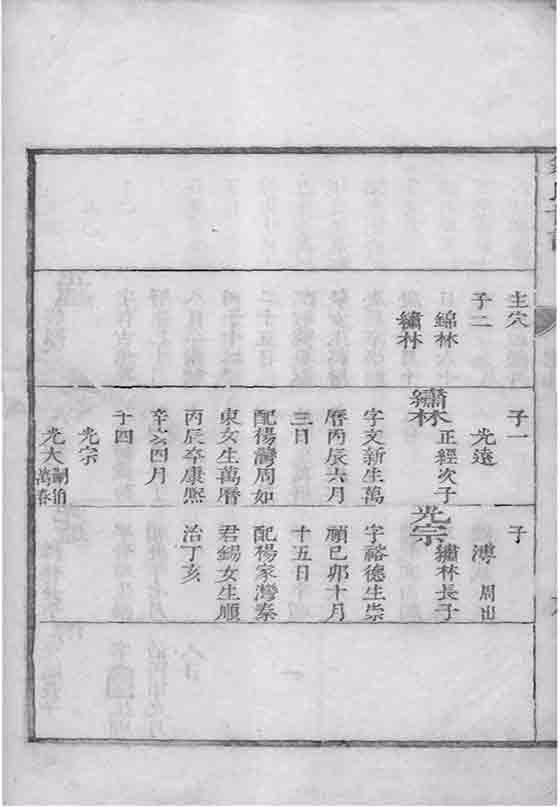 主穴
子二
綿林
繡林
子一
光遠
繡林 正經次子
字文新生萬
曆丙辰六月
三日
配楊灣周如
東女生萬曆
丙辰卒康熙
辛亥四月
子四
光宗
光大 嗣伯萬春
子
溥 周出
光宗 繡林長子
字裕德生崇
禎己卯十月
十五日
配楊家灣秦
君錫女生順
治丁亥